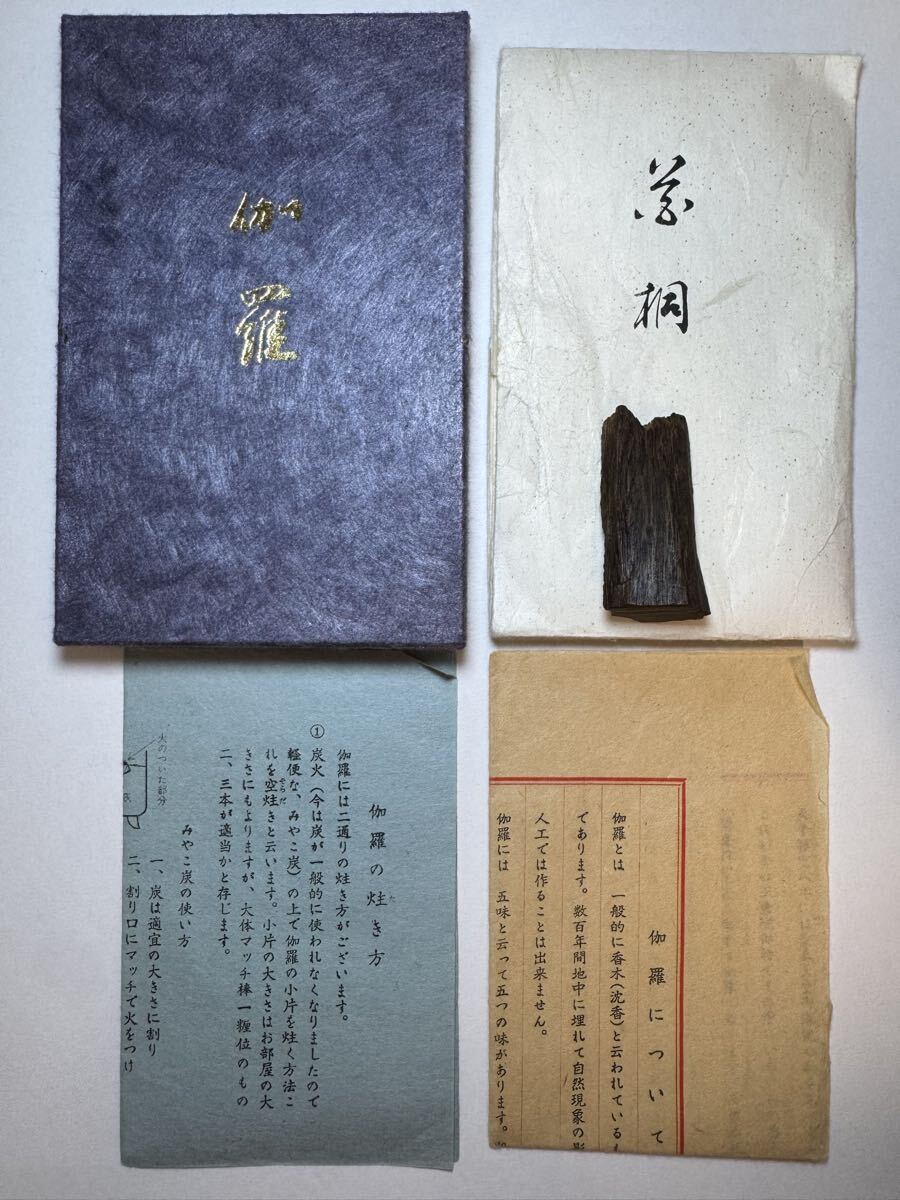 伽羅
茶桐
伽羅の炷き方
伽羅には二通りの炷き方がございます。
① 炭火（今は炭が一般的に使われなくなりましたので
軽便な、みやこ炭）の上で伽羅の小片を炷く方法こ
れを空炷きと云います。小片の大きさはお部屋の大
きさにもよりますが、大体マッチ棒一糎位のもの
二、三本が適当かと存じます。
みやこ炭の使い方
一、炭は適宜の大きさに割り
二、割り口にマッチで火をつけ
火のついた部分
灰
伽羅について
伽羅とは 一般的に香木（沈香）と云われているも
であります。数百年間地中に埋れて自然現象の
人工では作ることは出来ません。
伽羅には 五味と云って五つの味があります。